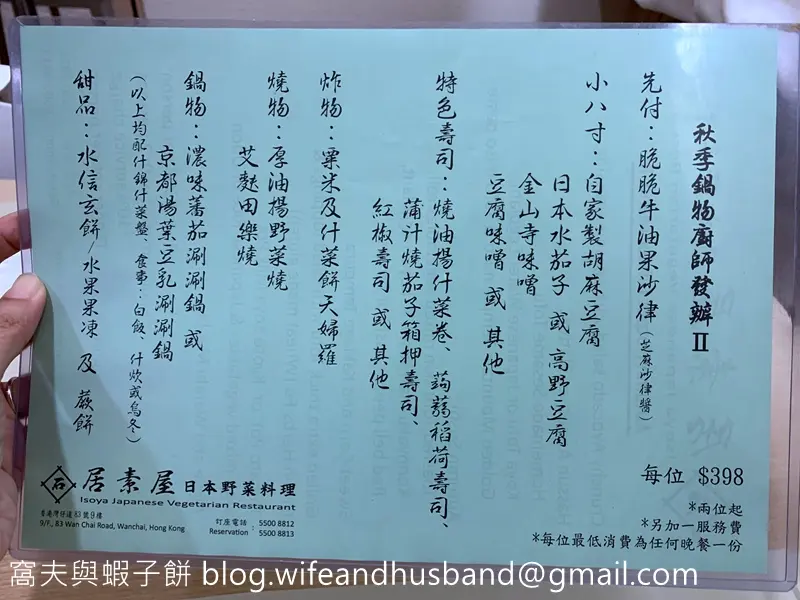 秋季鍋物廚師發辦 II
先付：脆脆牛油果沙律（芝麻沙律醬）
小八寸：自家製胡麻豆腐
日本水茄子 或 高野豆腐
金山寺味噌
豆腐味噌 或 其他
特色壽司：燒油揚什菜卷、蒟蒻稻荷壽司、
蒲汁燒茄子箱押壽司、
紅椒壽司 或 其他
炸物：粟米及什菜餅天婦羅
燒物：厚油揚野菜燒
艾麩田樂燒
鍋物：濃味蕃茄涮涮鍋 或
京都湯葉豆乳涮涮鍋
（以上均配什錦什菜盤、食事：白飯、什炊或烏冬）
甜品：水信玄餅/水果果凍 及 蕨餅
每位 $398
*兩位起
*另加一服務費
*每位最低消費為任何晚餐一份
石
居素屋 日本野菜料理
Isoya Japanese Vegetarian Restaurant
香港灣仔道83號9樓
9/F., 83 Wan Chai Road, Wanchai, Hong Kong
訂座電話 : 5500 8812
Reservation 5500 8813
窩夫與蝦子餅 blog.wifeandhusband@gmail.com